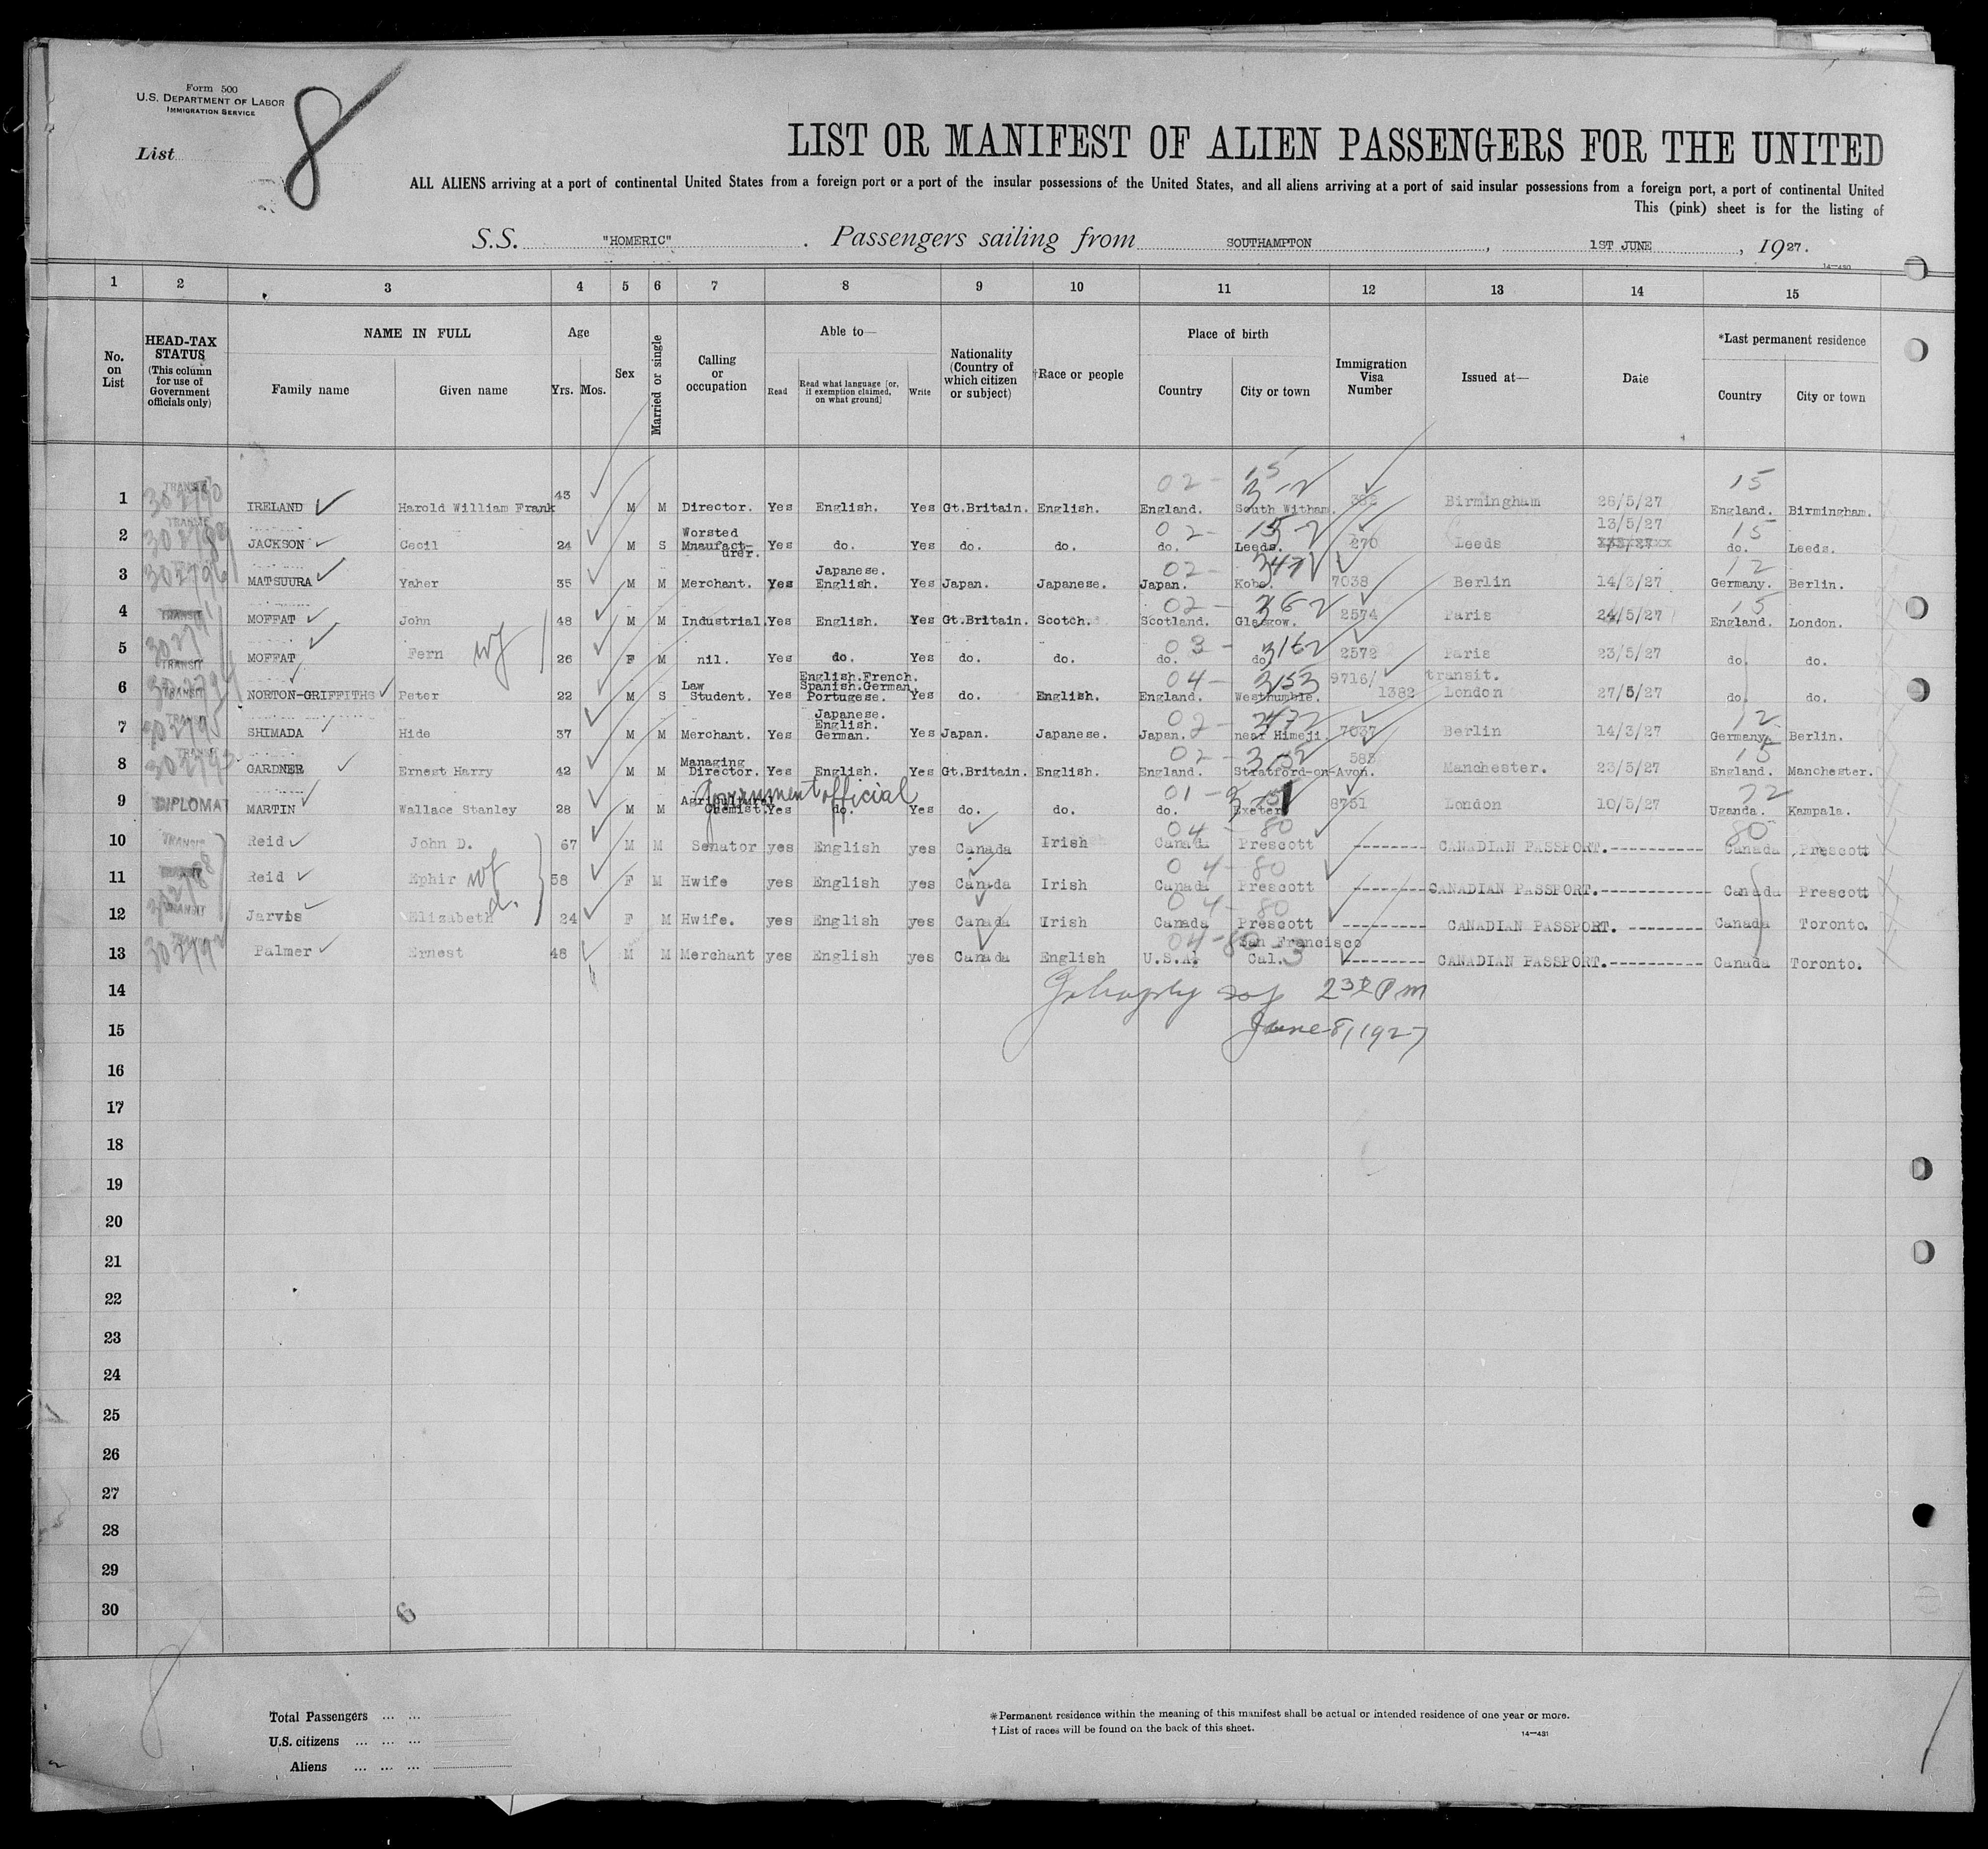 Form 500
U.S. DEPARTMENT OF LABOR
IMMIGRATION SERVICE
List 8
LIST OR MANIFEST OF ALIEN PASSENGERS FOR THE UNITED
ALL ALIENS arriving at a port of continental United States from a foreign port or a port of the insular possessions of the United States, and all aliens arriving at a port of said insular possessions from a foreign port, a port of continental United
This (pink) sheet is for the listing of
S.S. "HOMERIC" . Passengers sailing from SOUTHAMPTON , 1ST JUNE , 1927.
14—430
1 2 3 4 5 6 7 8 9 10 11 12 13 14 15
No. on List
HEAD-TAX STATUS (This column for use of Government officials only)
NAME IN FULL
Family name Given name
Age
Yrs. Mos.
Sex
Married or single
Calling or occupation
Able to—
Read
Read what language (or, if exemption claimed, on what ground)
Write
Nationality (Country of which citizen or subject)
†Race or people
Place of birth
Country City or town
Immigration Visa Number
Issued at—
Date
*Last permanent residence
Country City or town
1 TRANSIT 302790 IRELAND Harold William Frank 43 M M Director. Yes English. Yes Gt.Britain. English. England. South Witham. 382 Birmingham 26/5/27 England. Birmingham.
02- 15 3-2 15
2 TRANSIT 302789 JACKSON Cecil 24 M S Worsted Mnaufact-urer. Yes do. Yes do. do. do. Leeds. 270 Leeds 13/5/27 do. Leeds.
02- 15
3 MATSUURA Yaher 35 M M Merchant. Yes Japanese. English. Yes Japan. Japanese. Japan. Kobe. 7038 Berlin 14/3/27 Germany. Berlin.
02- 12
4 TRANSIT MOFFAT John 48 M M Industrial. Yes English. Yes Gt.Britain. Scotch. Scotland. Glasgow. 2574 Paris 24/5/27 England. London.
02- 15
5 TRANSIT MOFFAT Fern wf 26 F M nil. Yes do. Yes do. do. do. do. 2572 Paris 23/5/27 do. do.
03- 3162
6 TRANSIT NORTON-GRIFFITHS Peter 22 M S Law Student. Yes English.French. Spanish.German. Portugese. Yes do. English. England. Westhumble. 9716/1382 transit. London 27/5/27 do. do.
04- 3153
7 TRANSIT 302795 SHIMADA Hide 37 M M Merchant. Yes Japanese. English. German. Yes Japan. Japanese. Japan. near Himeji. 7037 Berlin 14/3/27 Germany. Berlin.
02- 12
8 TRANSIT 302793 GARDNER Ernest Harry 42 M M Managing Director. Yes English. Yes Gt.Britain. English. England. Stratford-on-Avon. 583 Manchester. 23/5/27 England. Manchester.
02- 15
9 DIPLOMAT MARTIN Wallace Stanley 28 M M Agricultural Chemist. Government official Yes do. Yes do. do. do. Exeter 8751 London 10/5/27 Uganda. Kampala.
01-
10 TRANSIT Reid John D. 67 M M Senator yes English yes Canada Irish Canada Prescott -------- CANADIAN PASSPORT.----------- Canada , Prescott
04-80 80
11 TRANSIT Reid Ephir wf 58 F M Hwife yes English yes Canada Irish Canada Prescott --------CANADIAN PASSPORT.------------- Canada Prescott
04-80
12 TRANSIT Jarvis Elizabeth d. 24 F M Hwife. yes English yes Canada Irish Canada Prescott --------- CANADIAN PASSPORT. --------- Canada Toronto.
04-80
13 302792 Palmer Ernest 48 M M Merchant yes English yes Canada English U.S.A. San Francisco Cal. --------- CANADIAN PASSPORT.----------- Canada Toronto.
04-80 3
14
2 30 Pm
15
June 8, 1927
16
17
18
19
20
21
22
23
24
25
26
27
28
29
30
6
8
Total Passengers ... ...
U.S. citizens ... ... ...
Aliens ... ... ...
*Permanent residence within the meaning of this manifest shall be actual or intended residence of one year or more.
†List of races will be found on the back of this sheet.
14—431